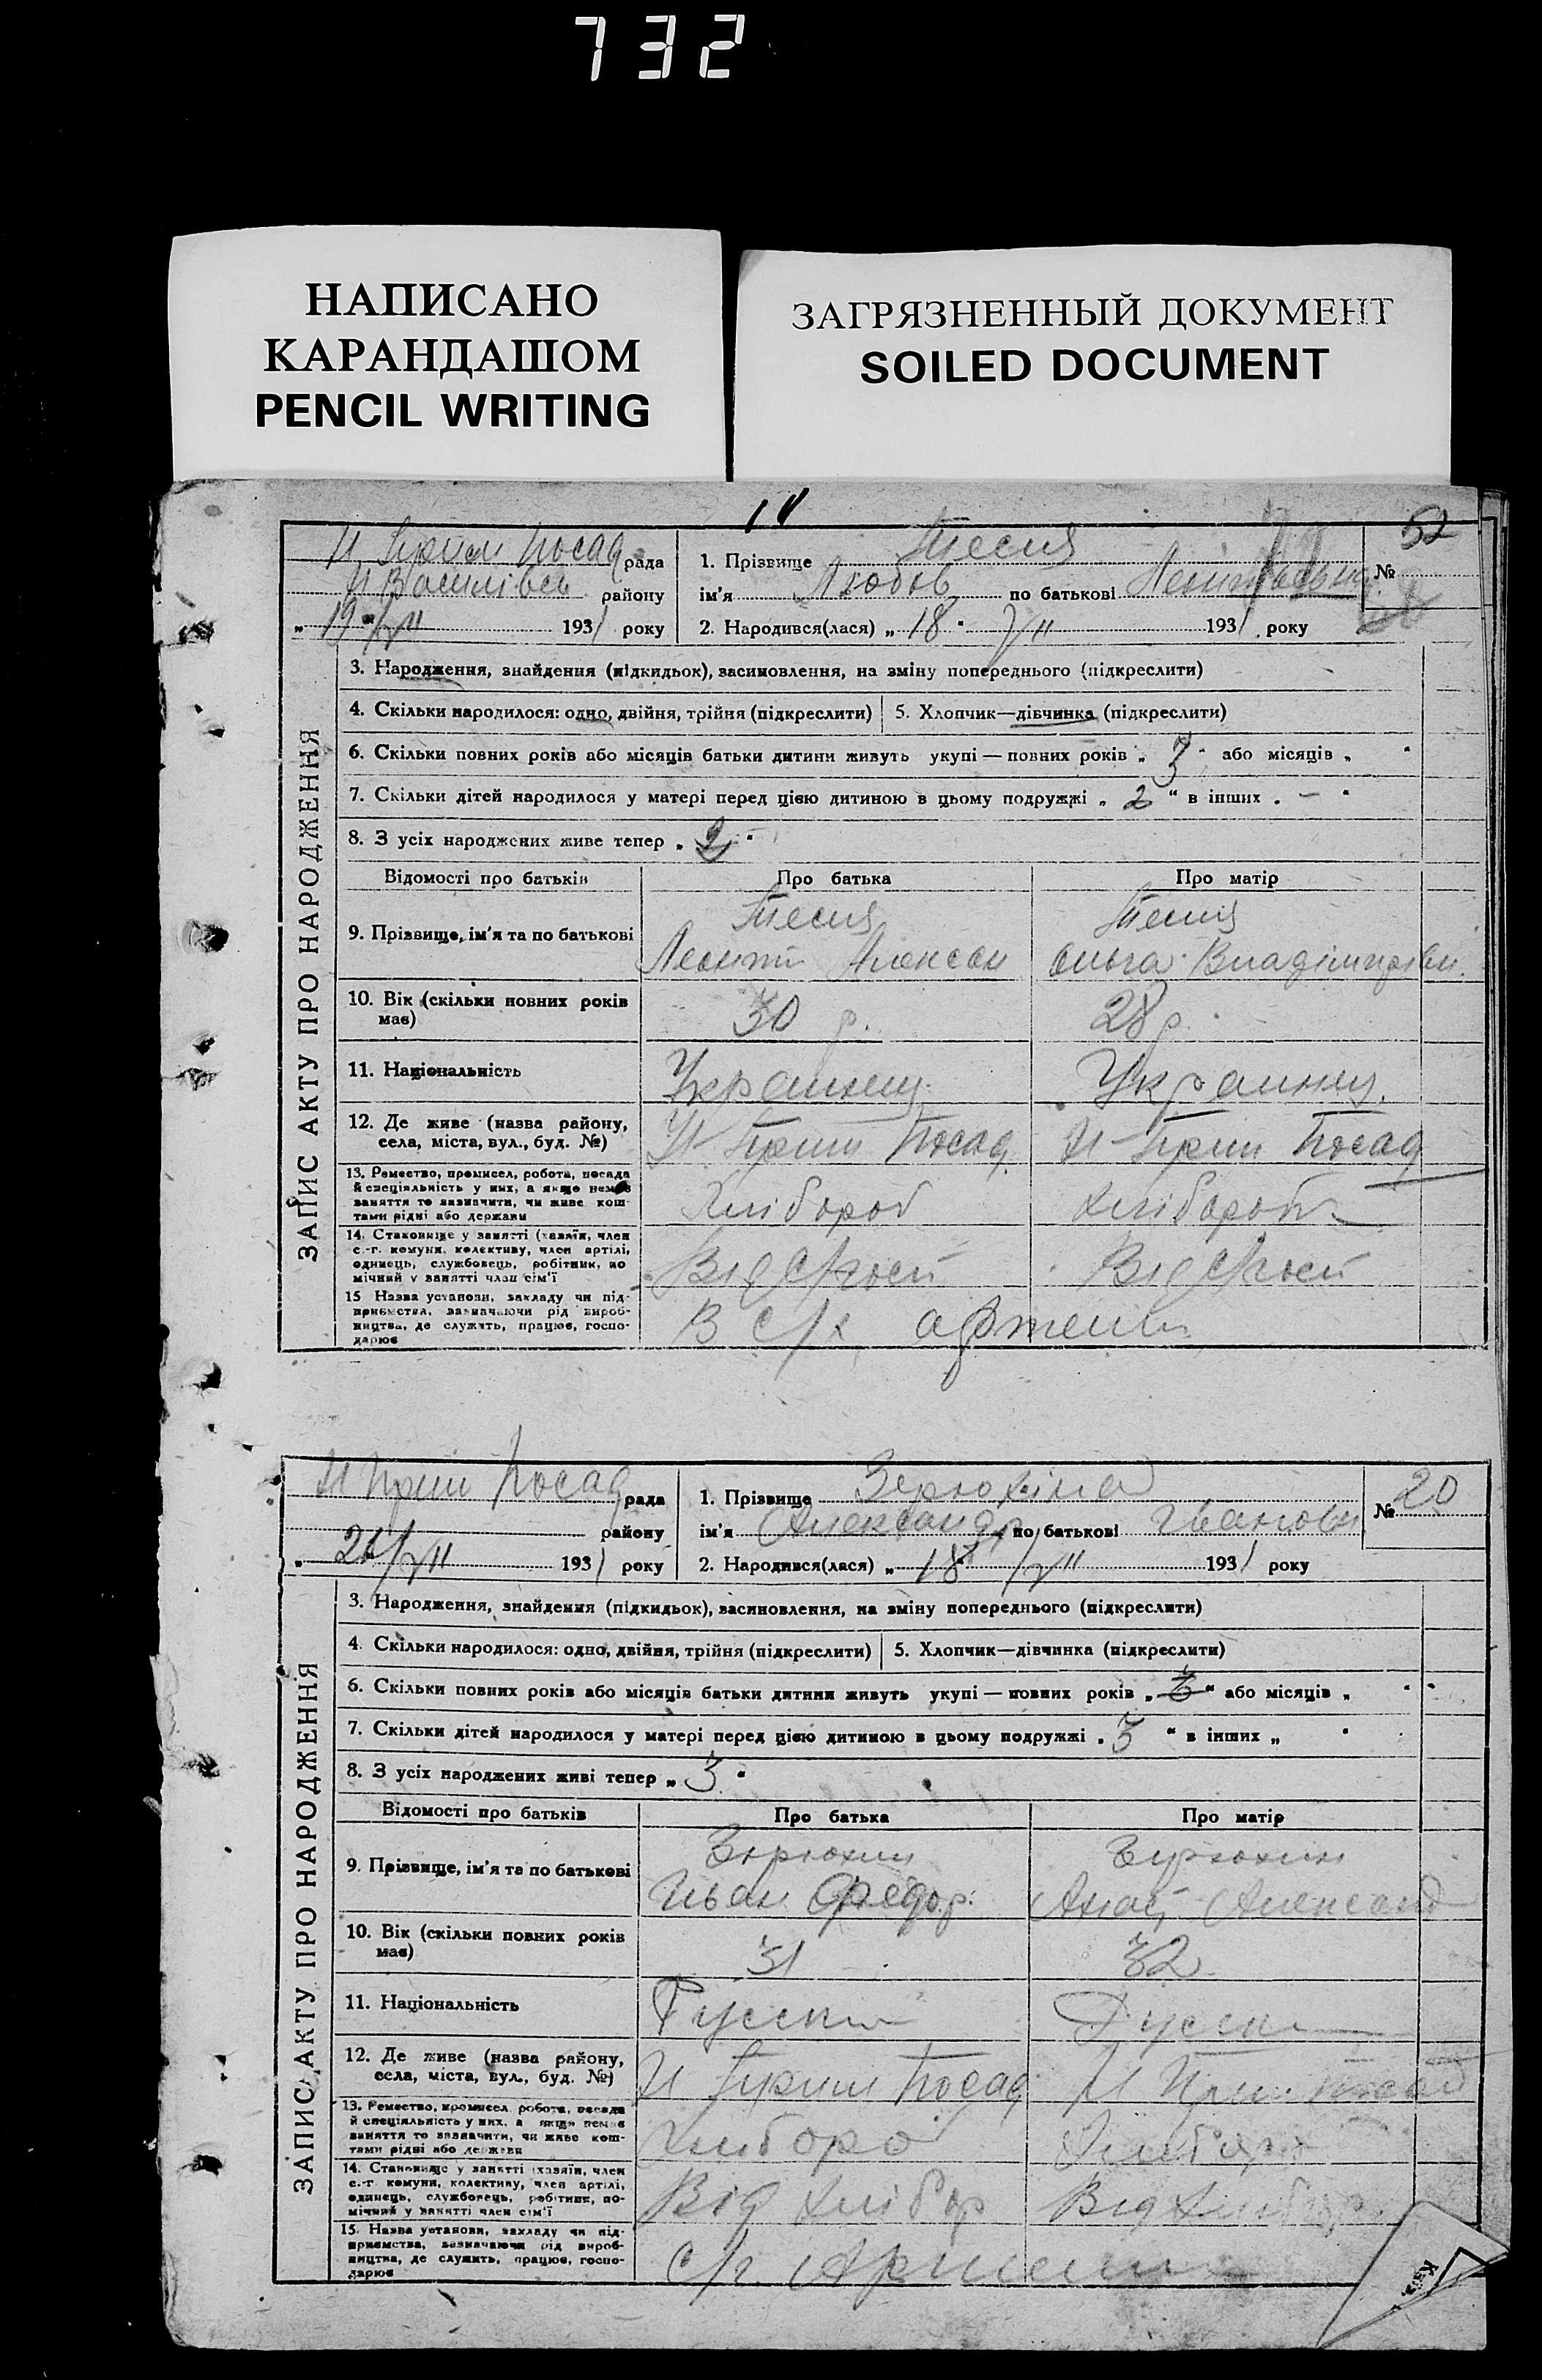 732
НАПИСАНО
КАРАНДАШОМ
PENCIL WRITING
ЗАГРЯЗНЕННЫЙ ДОКУМЕНТ
SOILED DOCUMENT
52
Посад рада
району
19 VII 1931 року
1. Прізвище Тесля
ім'я Любов по батькові
№
2. Народився(лася) „ 18 " VII 1931 року
ЗАПИС АКТУ ПРО НАРОДЖЕННЯ
3. Народження, знайдення (підкидьок), засиновлення, на зміну попереднього (підкреслити)
4. Скільки народилося: одно, двійня, трійня (підкреслити) 5. Хлопчик—дівчинка (підкреслити)
6. Скільки повних років або місяців батьки дитини живуть укупі — повних років „ 3 " або місяців „ "
7. Скільки дітей народилося у матері перед цією дитиною в цьому подружжі „ 2 " в інших „ — "
8. З усіх народжених живе тепер „ 2 "
Відомості про батьків Про батька Про матір
9. Прізвище, ім'я та по батькові
Тесля
Тесля
Ольга
10. Вік (скільки повних років має)
30 р.
28 р.
11. Національність
Украинец
Украинец
12. Де живе (назва району,
села, міста, вул., буд. №)
Посад
Посад
13. Ремество, промисел, робота, посада
й спеціяльність у них, а якщо немає
заняття то зазначити, чи живе кош-
тами рідні або держави
Хлібороб
Хлібороб
14. Становище у занятті (хазяїн, член
с.-г. комуни, колективу, член артілі,
одинець, службовець, робітник, по
мічний у занятті член сім'ї
Від с/госп
Від с/госп
15 Назва установи, закладу чи під-
приємства, зазначаючи рід вироб-
ництва, де служить, працює, госпо-
дарює
В с/х артели
Посад рада
району
21 VII 1931 року
1. Прізвище Зерюхіна
ім'я Александр по батькові Іванови
№ 20
2. Народився(лася) „ 18 " VII 1931 року
ЗАПИС АКТУ ПРО НАРОДЖЕННЯ
3. Народження, знайдення (підкидьок), засиновлення, на зміну попереднього (підкреслити)
4. Скільки народилося: одно, двійня, трійня (підкреслити) 5. Хлопчик—дівчинка (підкреслити)
6. Скільки повних років або місяців батьки дитини живуть укупі — повних років „ 3 " або місяців „ "
7. Скільки дітей народилося у матері перед цією дитиною в цьому подружжі „ 3 " в інших „ "
8. З усіх народжених живі тепер „ 3 "
Відомості про батьків Про батька Про матір
9. Прізвище, ім'я та по батькові
Иван Федор.
Александ
10. Вік (скільки повних років
має)
31
32
11. Національність
Русски
Русски
12. Де живе (назва району,
села, міста, вул., буд. №)
Посад
Посад
13. Ремество, промисел, робота, посада
й спеціяльність у них, а якщо немає
заняття то зазначити, чи живе кош-
тами рідні або держави
Хлібороб
14. Становище у занятті (хазяїн, член
с.-г. комуни, колективу, член артілі,
одинець, службовець, робітник, по-
мічний у занятті член сім'ї
Від хлібор
Від хлібор
15. Назва установи, закладу чи під-
приємства, зазначаючи рід вироб-
ництва, де служить, працює, госпо-
дарює
с/г. Артели